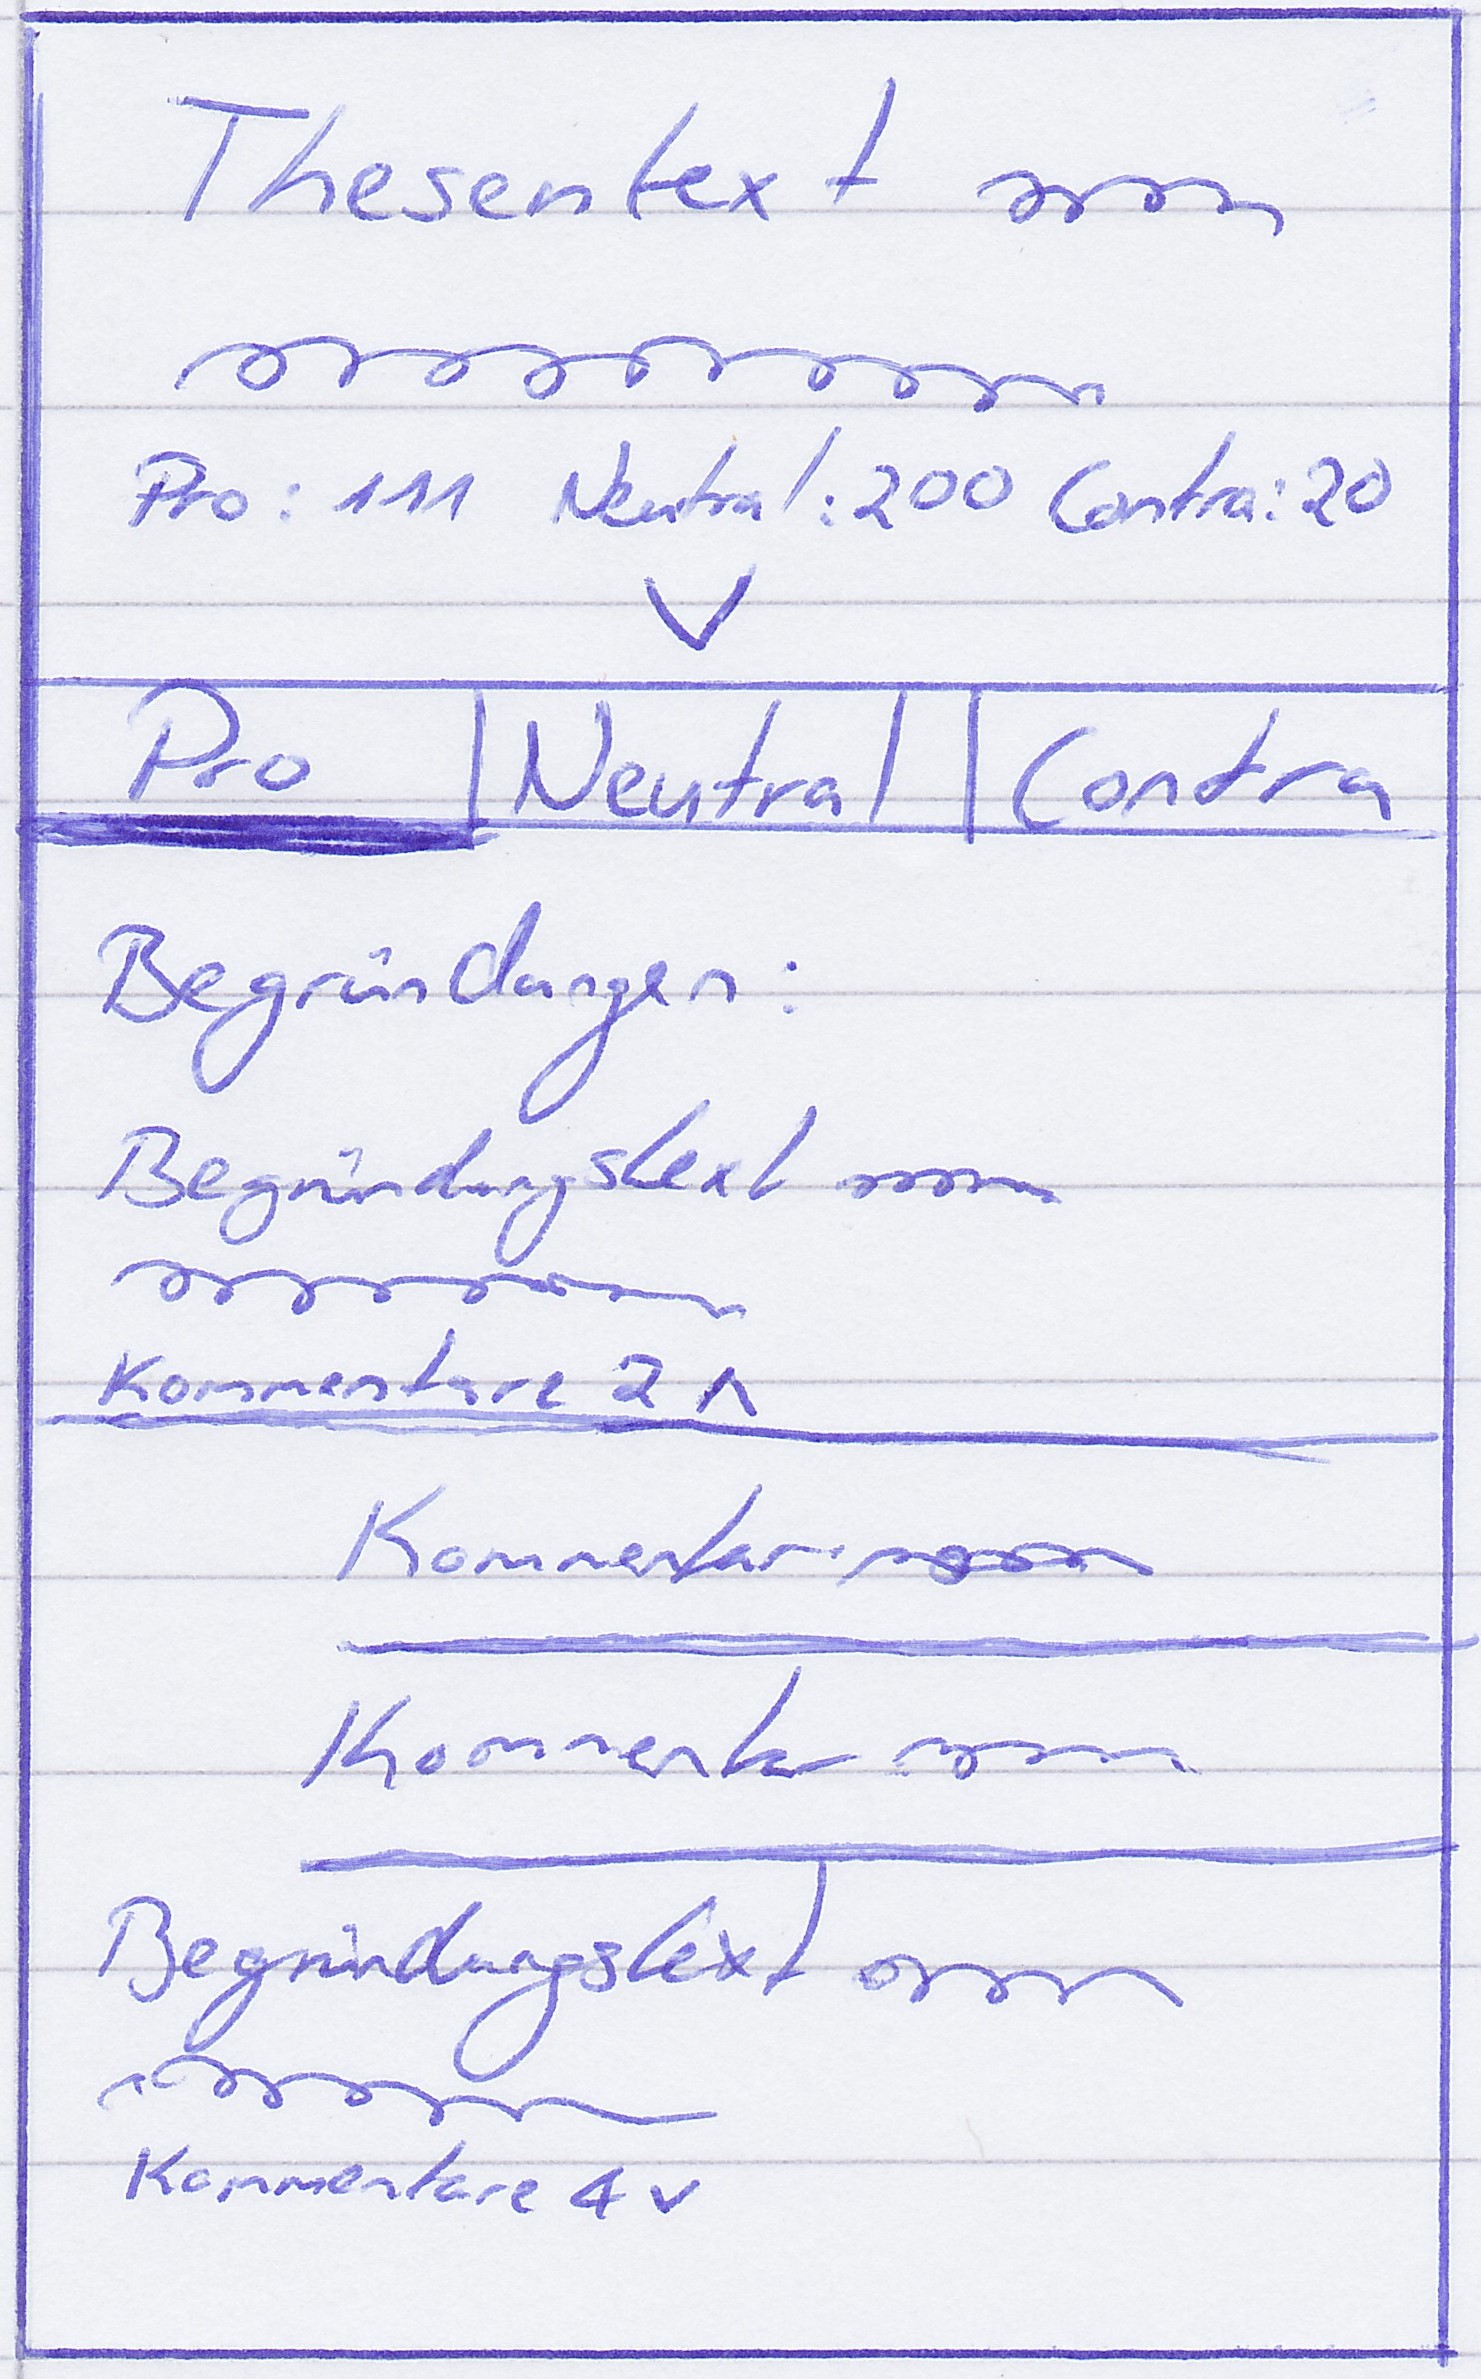 Thesentext
Pro: 111 Neutral: 200 Contra: 20
Pro | Neutral | Contra
Begründungen:
Begründungstext
Kommentare 2 ʌ
Kommentar
Kommentar
Begründungstext
Kommentare 4 v